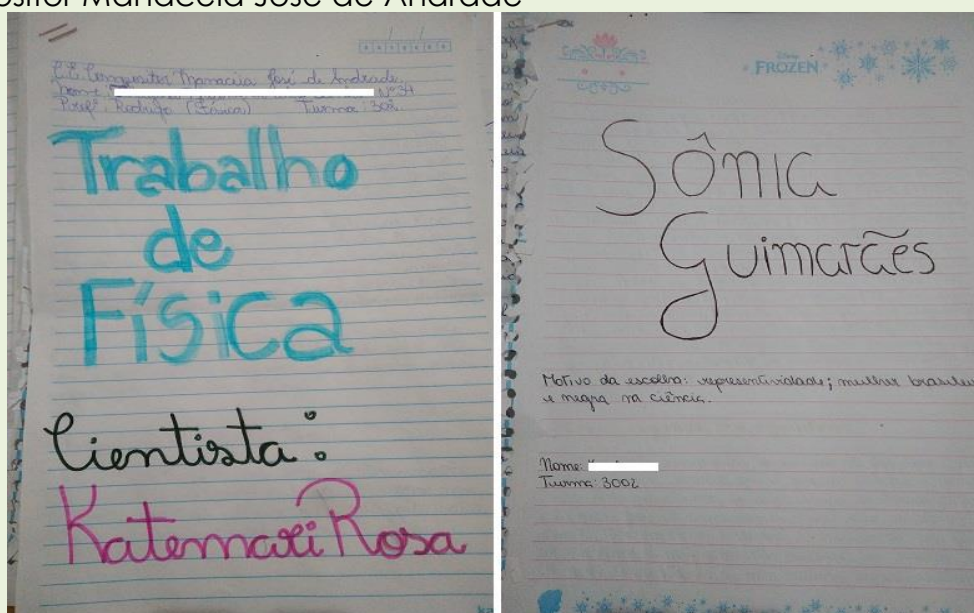 ositor Manacéia José de Andrade
C.E. Compositor Manacéia José de Andrade
Nome: Nº 34
Profº: Rodrigo (Física) Turma: 302
Trabalho
de
Física
Cientista:
Katemari Rosa
Disney
FROZEN
Sônia
Guimarães
Motivo da escolha: representividade; mulher brasileir
e negra na ciência.
Nome:
Turma: 3002